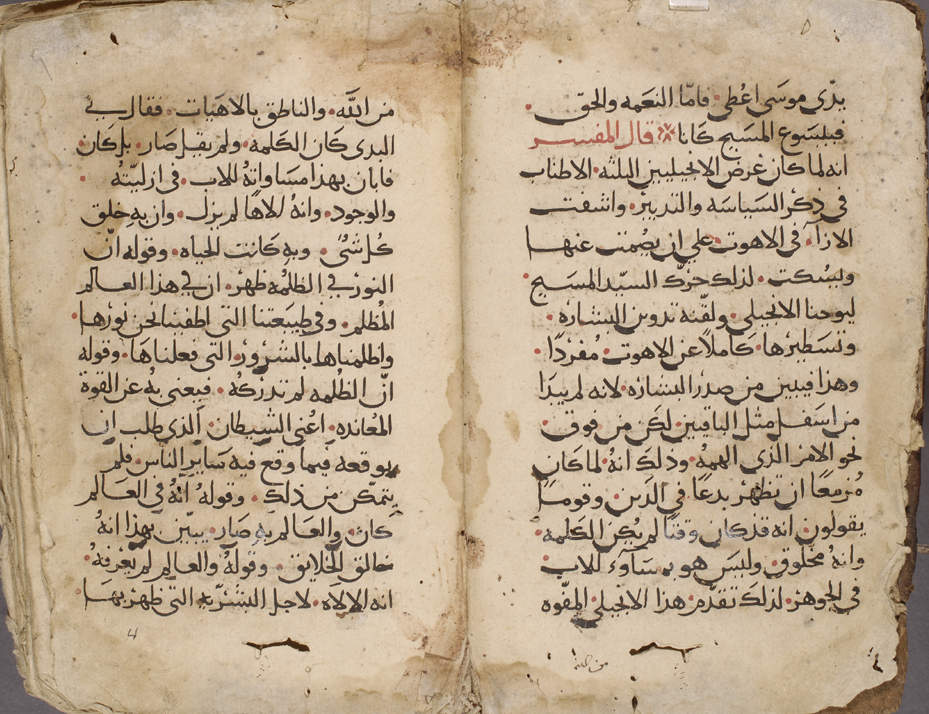 بيدى موسى اعُطى فامّا النعمه والحق
فبيسوع المسيح كانا قال المفسر
انه لما كان غرض الانجيليين الثلثه الاطناب
فى ذكر السياسه والتدبير واتفقت
الارآء فى الاهوت على ان يصُمت عنها
ويسُكت لذلك حرّك السيّد المسيح
ليوحنا الانجيلى ولقّنه تدوين البشاره
وتسَطيرها كاملاً عن الاهوت مُفردًا
وهذا فيبين من صدر البشاره لانه لم يبدا
من اسَفل مثل الباقيين لكن من فوق
نحو الامر الذى الهمهُ وذلك انهُ لما كان
مُزمعًا ان تظهر بدعًا فى الدين وقومًا
يقولون انه قد كان وقتًا لم يكن الكلمه
وانهُ مخلوق وليسَ هو بمسَاوٍ للاب
فى الجوهر لذلك تقدّم هذا الانجيلى المفّوه
من الله
من الله والناطق بالاهيات فقال فى
البدى كان الكلمه ولم يقل صَار بل كان
فابان بهذا مسَاواتهُ للاب فى ازليتهُ
والوجود وانهُ للاهًا لم يزل وان بهِ خلق
كُل شئ وبهِ كانت الحياه وقوله انّ
النور فى الظلمُه ظهر ان فى هذا العالم
المُظلم وفى طبيعتنا التى اطفينا نحن نورها
واظلمناها بالشرور التى فعلناها وقوله
انّ الظلُمه لم تدركهُ فيعنى بهُ عن القوة
المعَانده اعُنى الشيطان الذى طلب ان
يوقعه فيما وقع فيه سَاير الناس فلم
يتمكن من ذلك وقولهُ انّه فى العَالم
كان والعَالم بهِ صَار يبيّن بهذا انهُ
خالق الخلايق وقولهُ والعالم لم يعرفهُ
انه الالاه لاجل البشريّه التى ظهر بها
4